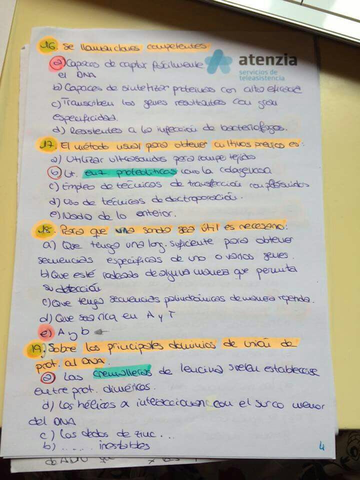 16. Se llaman clones competentes
atenzia
servicios de
teleasistencia
a) Capaces de captar fácilmente
el DNA
b) Capaces de sintetizar proteínas con alta eficacia
c) Transcriben los genes resultantes con gran
especificidad.
d) Resistentes a la infección de bacteriófagos.
17. El método usual para obtener cultivos
a) Utilizar ultrasonidos para romper tejidos
b) Ut. enz proteolíticas como la colagenasa
c) Empleo de técnicas de transfección con plásmidos
d) Uso de técnicas de electroporación.
e) Nada de lo anterior.
18. Para que una sonda sea útil es necesario:
a) Que tenga una long. suficiente para obtener
secuencias específicas de uno o varios genes.
b) Que esté de alguna manera que permita
su detección
c) Que tenga secuencias de manera repetida.
d) Que sea rica en A y T
e) A y b
19. Sobre los principales dominios de unión de
prot. al DNA
a) Las cremalleras de leucina suelen establecerse
entre prot. diméricas.
d) Las hélices α interaccionan con el surco menor
del DNA
c) Los dedos de zinc...
b) ...... inestables
4